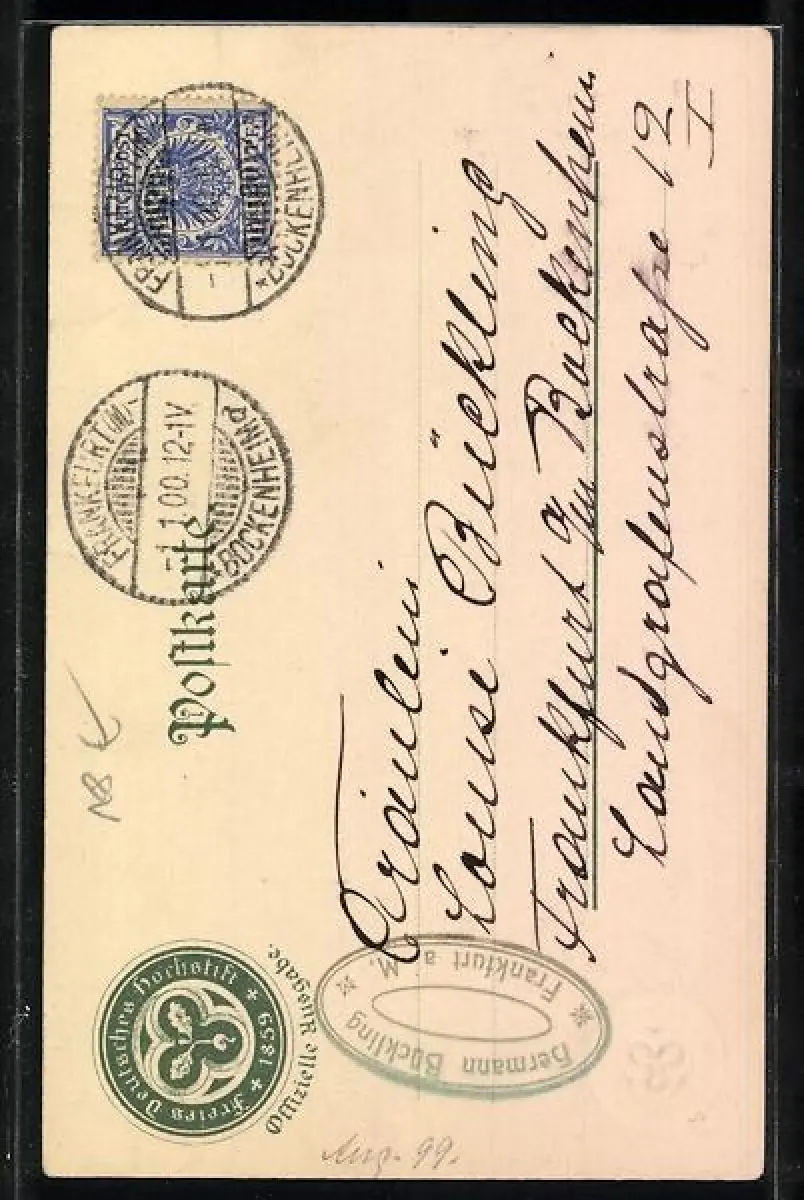 Freies Deutsches Hochstift
1859
Offizielle Ausgabe.
Postkarte
FRANKFURT (M)-
1.00.12-1V.
BOCKENHEIM d
REICHSPOST
BOCKENHEIM
Fräulein
Louise Bückling
Frankfurt a/m Bockenheim
Landgrafenstraße 12
I
Hermann Bückling
Frankfurt a M.
Aug. 99.